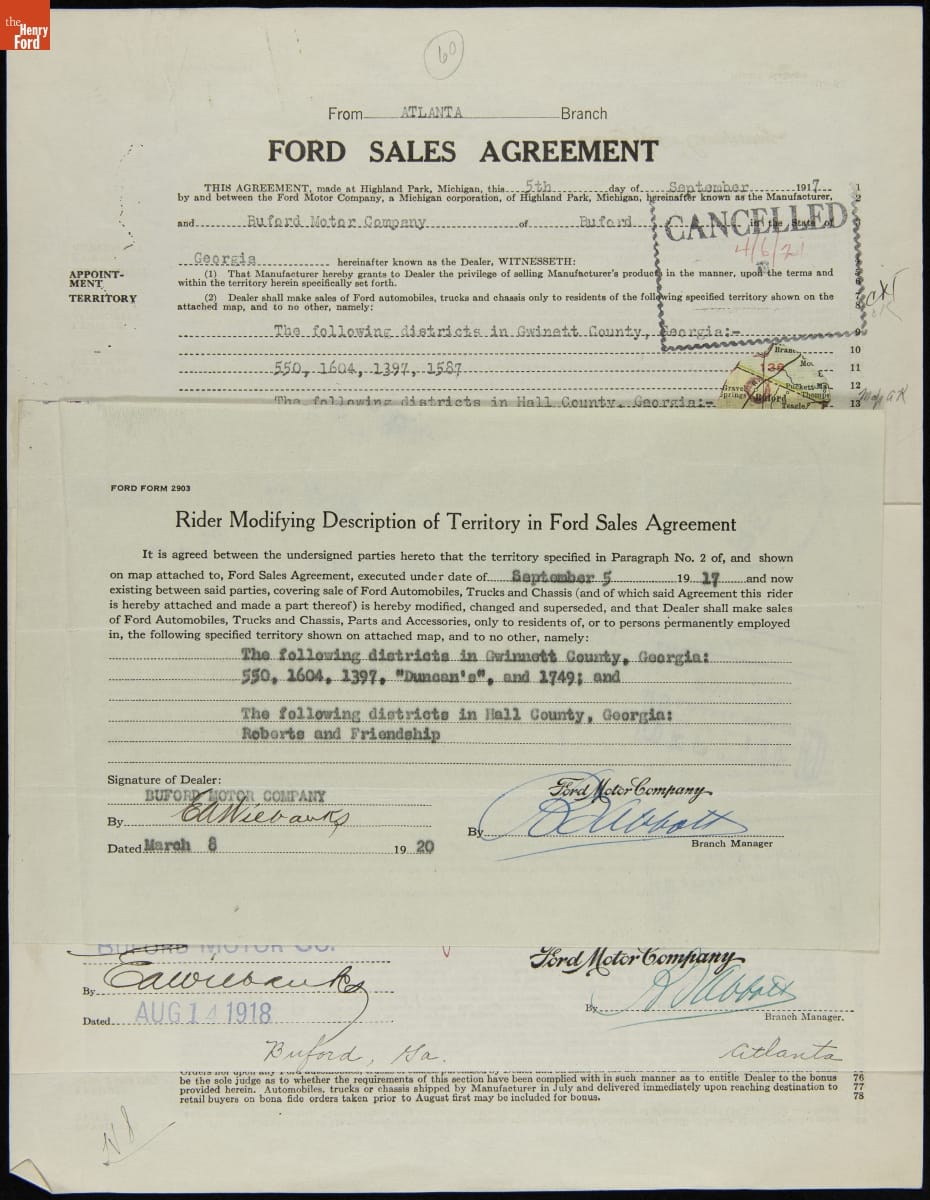 the
Henry
Ford
60
From ATLANTA Branch
FORD SALES AGREEMENT
THIS AGREEMENT, made at Highland Park, Michigan, this 5th day of September 1917 1
by and between the Ford Motor Company, a Michigan corporation, of Highland Park, Michigan, hereinafter known as the Manufacturer, 2
and Buford Motor Company of Buford in the State of
CANCELLED
4/6/21
Georgia hereinafter known as the Dealer, WITNESSETH:
APPOINT-
MENT
(1) That Manufacturer hereby grants to Dealer the privilege of selling Manufacturer's products in the manner, upon the terms and
within the territory herein specifically set forth.
TERRITORY
(2) Dealer shall make sales of Ford automobiles, trucks and chassis only to residents of the following specified territory shown on the
attached map, and to no other, namely:
The following districts in Gwinett County, Georgia:- 9
10
550, 1604, 1397, 1587 11
12
The following districts in Hall County, Georgia:- 13
Map OK
Buford
FORD FORM 2903
Rider Modifying Description of Territory in Ford Sales Agreement
It is agreed between the undersigned parties hereto that the territory specified in Paragraph No. 2 of, and shown
on map attached to, Ford Sales Agreement, executed under date of September 5 1917 and now
existing between said parties, covering sale of Ford Automobiles, Trucks and Chassis (and of which said Agreement this rider
is hereby attached and made a part thereof) is hereby modified, changed and superseded, and that Dealer shall make sales
of Ford Automobiles, Trucks and Chassis, Parts and Accessories, only to residents of, or to persons permanently employed
in, the following specified territory shown on attached map, and to no other, namely:
The following districts in Gwinnett County, Georgia:
550, 1604, 1397, "Duncan's", and 1749; and
The following districts in Hall County, Georgia:
Roberts and Friendship
Signature of Dealer:
BUFORD MOTOR COMPANY
By EA Wilbanks
Dated March 8 1920
Ford Motor Company
By Abbott
Branch Manager
BUFORD MOTOR CO.
By EA Wilbanks
Dated AUG 14 1918
Buford, Ga.
Ford Motor Company
By Abbott
Branch Manager.
Atlanta
be the sole judge as to whether the requirements of this section have been complied with in such manner as to entitle Dealer to the bonus 76
provided herein. Automobiles, trucks or chassis shipped by Manufacturer in July and delivered immediately upon reaching destination to 77
retail buyers on bona fide orders taken prior to August first may be included for bonus. 78